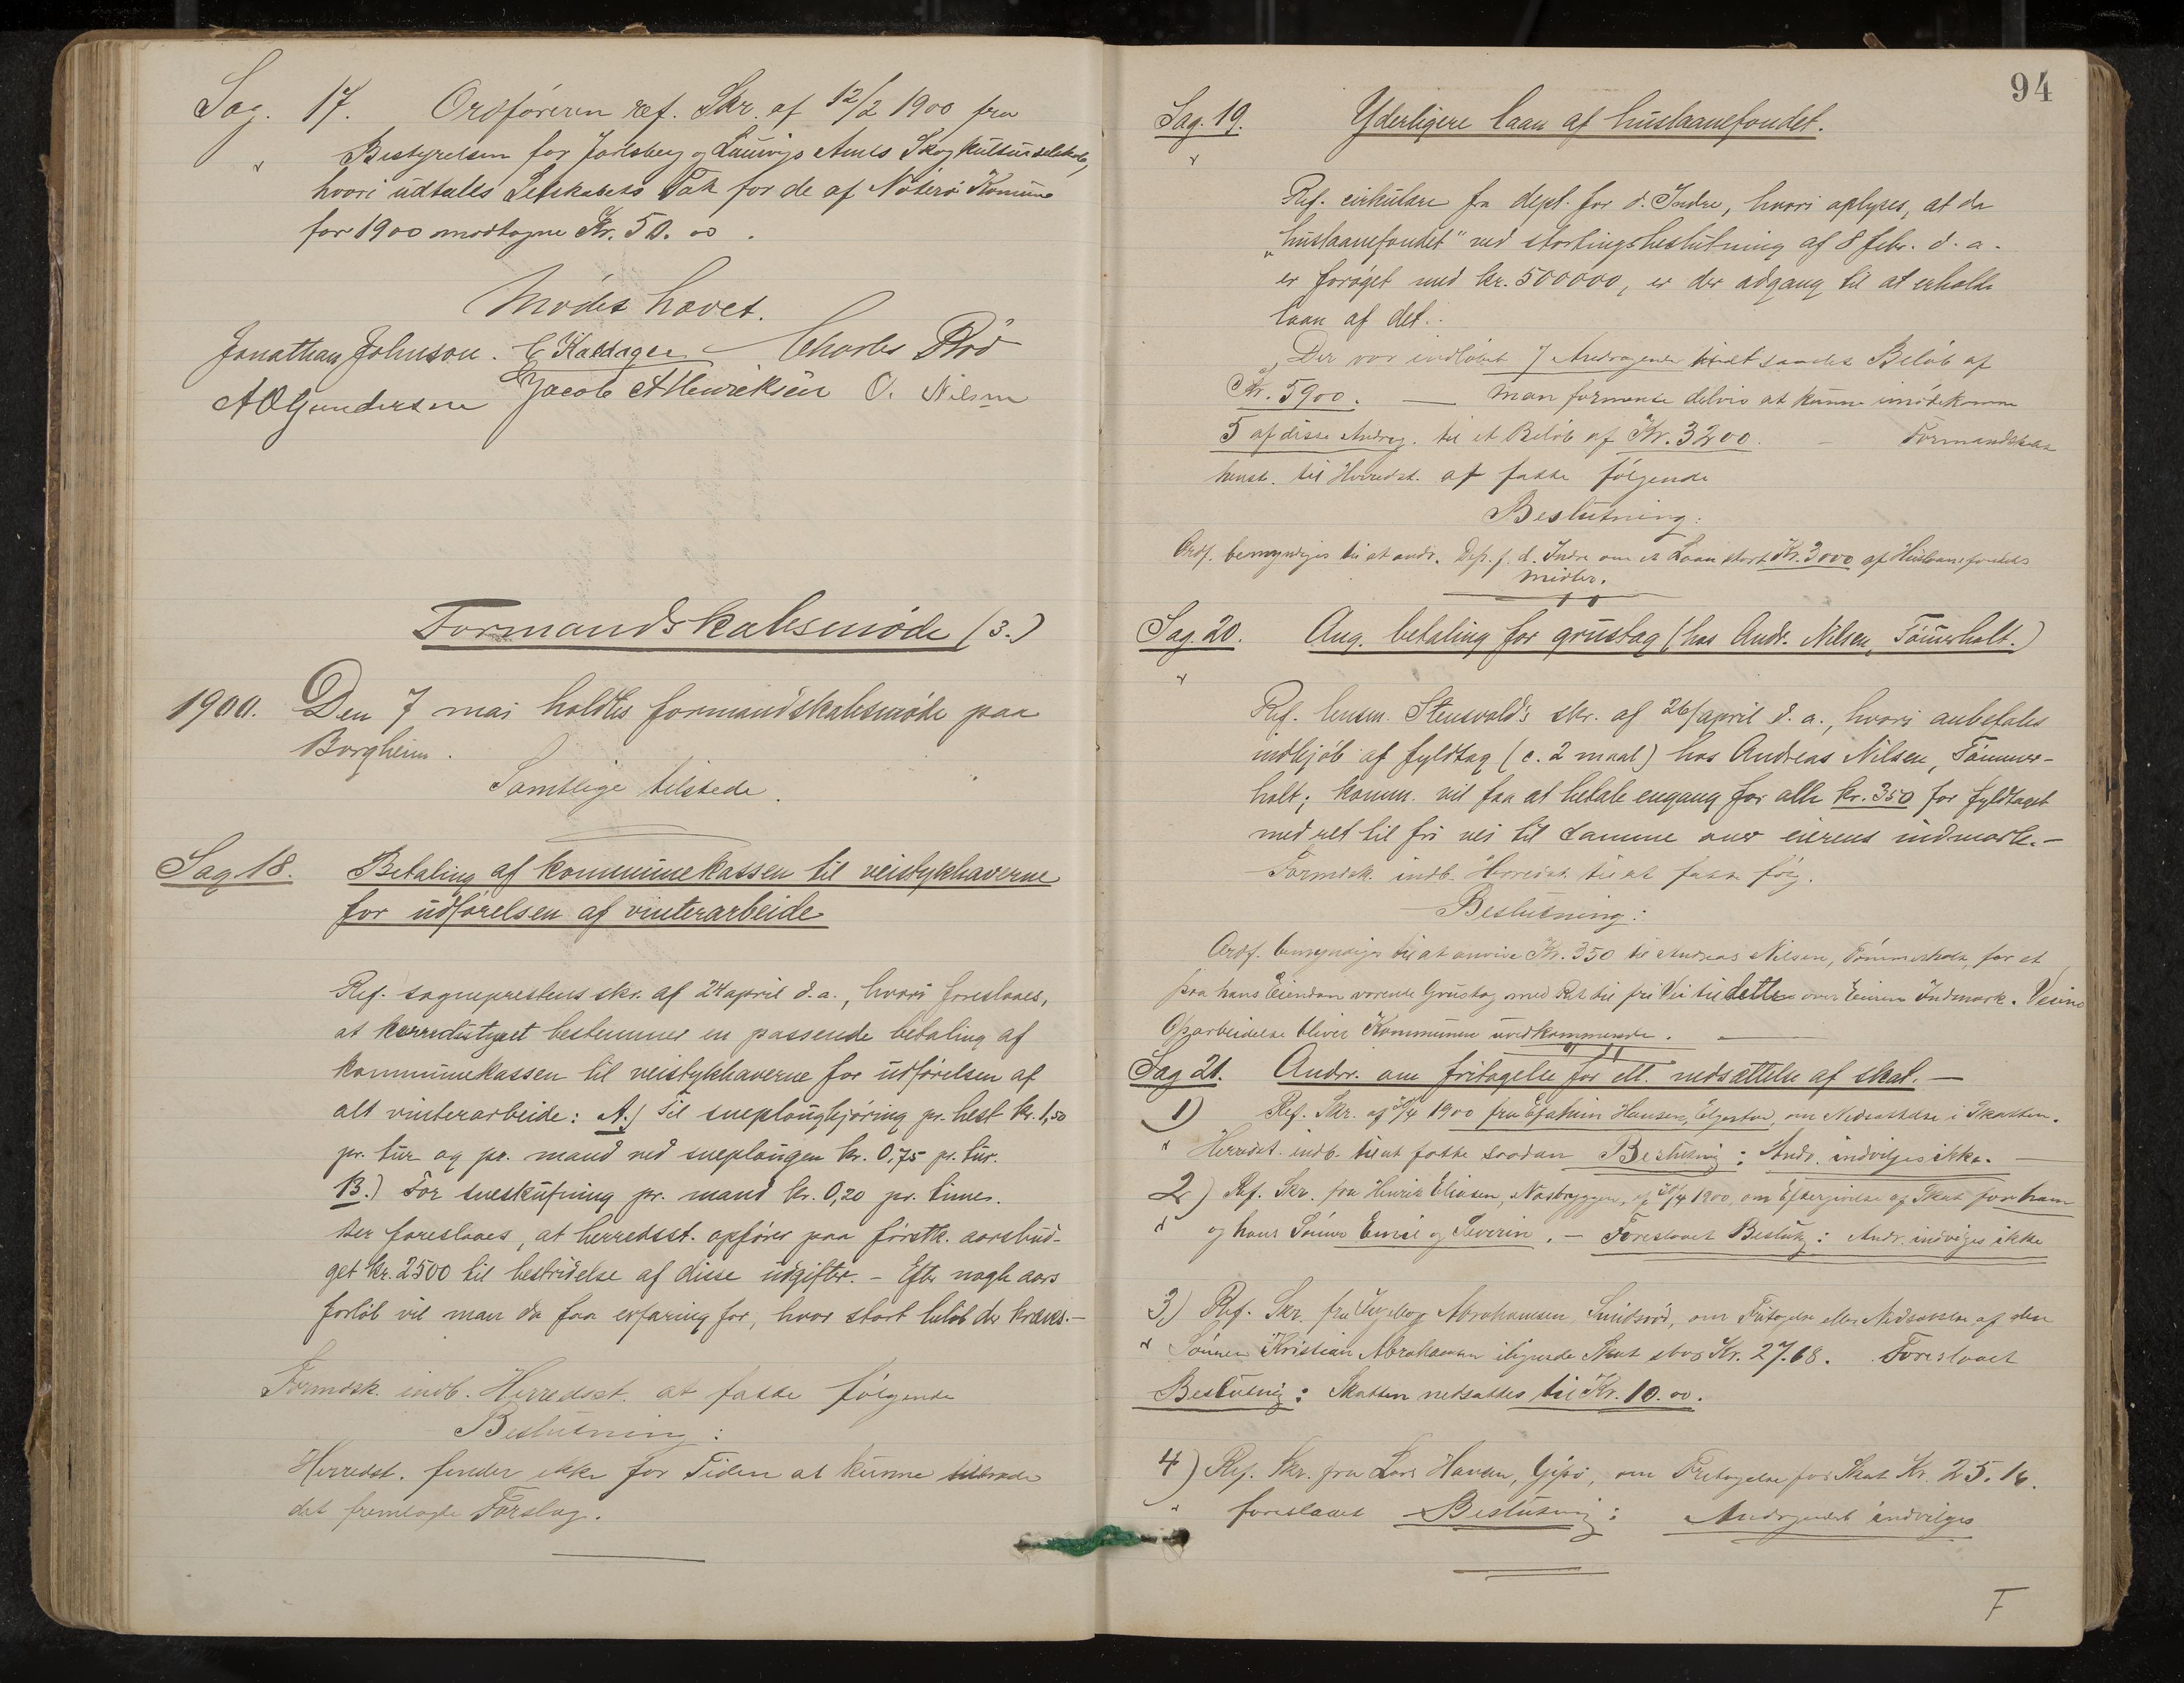 Sag. 17. Ordføreren ref. Skr. af 12/2 1900 fra
Bestyrelsen for Jarlsberg og Laurvigs Amts Skogkulturselskab,
hvori udtales Selskabets Tak for de af Nøterø Komune
for 1900 modtagne Kr. 50.00.
Mødet hævet.
Jonathan Johnson. C Kaldager Charles Rød
A O Gundersen Jacob A Henriksen O. Nilsen
Formandskabsmøde (3.)
1900. Den 7 mai holdtes formandskabsmøde paa
Borgheim.
Samtlige tilstede.
Sag 18. Betaling af kommunekassen til veistykhaverne
for udførelsen af vinterarbeide
Ref. sogneprestens skr. af 24 april d. a., hvori foreslaaes,
at herredsstyret bestemmer en passende betaling af
kommunekassen til veistykhaverne for udførelsen af
alt vinterarbeide: A.) Til sneplougkjøring pr. hest kr. 1,50
pr. tur og pr. mand ved sneplougen kr. 0,75 pr. tur.
B.) For sneskufning pr. mand kr. 0,20 pr. time.
Der foreslaaes, at herredsst. opfører paa førstk. aarsbud-
get kr. 2500 til bestridelse af disse udgifter. - Efter nogle aars
forløb vil man da faa erfaring for, hvor stort beløb der kræves. -
Formdsk. indb. Herredsst. at fatte følgende
Beslutning:
Herredst. finder ikke for Tiden at kunne tiltræde
det fremlagte Forslag.
94
Sag. 19. Yderligere laan af huslaanefondet.
Ref. cirkulære fra dept. for d. Indre, hvori oplyses, at da
"huslaanefondet" ved stortingsbeslutning af 8 febr. d. a.
er forøget med kr. 500000, er der adgang til at erholde
laan af det.
Der var indløbet 7 Andragender til et samlet Beløb af
Kr. 5900. — Man formente delvis at kunne imødekomme
5 af disse Andrag. til et Beløb af Kr. 3200. — Formandskab
henst. til Herredst. at fatte følgende
Beslutning:
Ordf. bemyndiges til at andr. Dep. f. d. Indre om et Laan stort Kr. 3000 af Huslaanefondets
Midler.
Sag. 20. Ang. betaling for grustag (hos Andr. Nilsen, Tømmerholt.)
Ref. lensm. Stensvold's skr. af 26/april d. a., hvori anbefales
indkjøb af fyldtag (c. 2 maal) hos Andreas Nilsen, Tømmer-
holt; komm. vil faa at betale engang for alle kr. 350 for fyldtaget
med ret til fri vei til samme over eierens indmark. -
Formdsk. indb. Herredst. til at fatte følg.
Beslutning:
Ordf. bemyndiges til at anvise Kr. 350 til Andreas Nilsen, Tømmerholt, for et
paa hans Eiendom værende Grustag med Ret til fri Vei til dette over Eierens Indmark. Veiens
Oparbeidelse bliver Kommunen uvedkommende.
Sag 21. Andr. om fritagelse for ell. nedsættelse af skat. —
1) Ref. Skr. af /4 1900 fra Efakim Hansen, Elgestad, om Nedsættelse i Skatten.
Herredst. indb. til at fatte saadan Beslutning: Andr. indvilges ikke. —
2) Ref. Skr. fra Henrik Eliasen, Næsbryggen, af /4 1900, om Eftergivelse af Skat for ham
og hans Sønner Emil og Severin. - Foreslaaet Beslutg: Andr. indvilges ikke
3) Ref. Skr. fra Ingeborg Abrahamsen Smidsrød, om Fritagelse eller Nedsættelse af den
Sønnen Kristian Abrahamsen ilignede Skat stor Kr. 27.68. Foreslaaet
Beslutnig: Skatten nedsættes til Kr. 10.00.
4) Ref. Skr. fra Lars Hansen, Gipø, om Fritagelse for Skat Kr. 25.16.
foreslaaet Beslutning: Andragendet indvilges
F